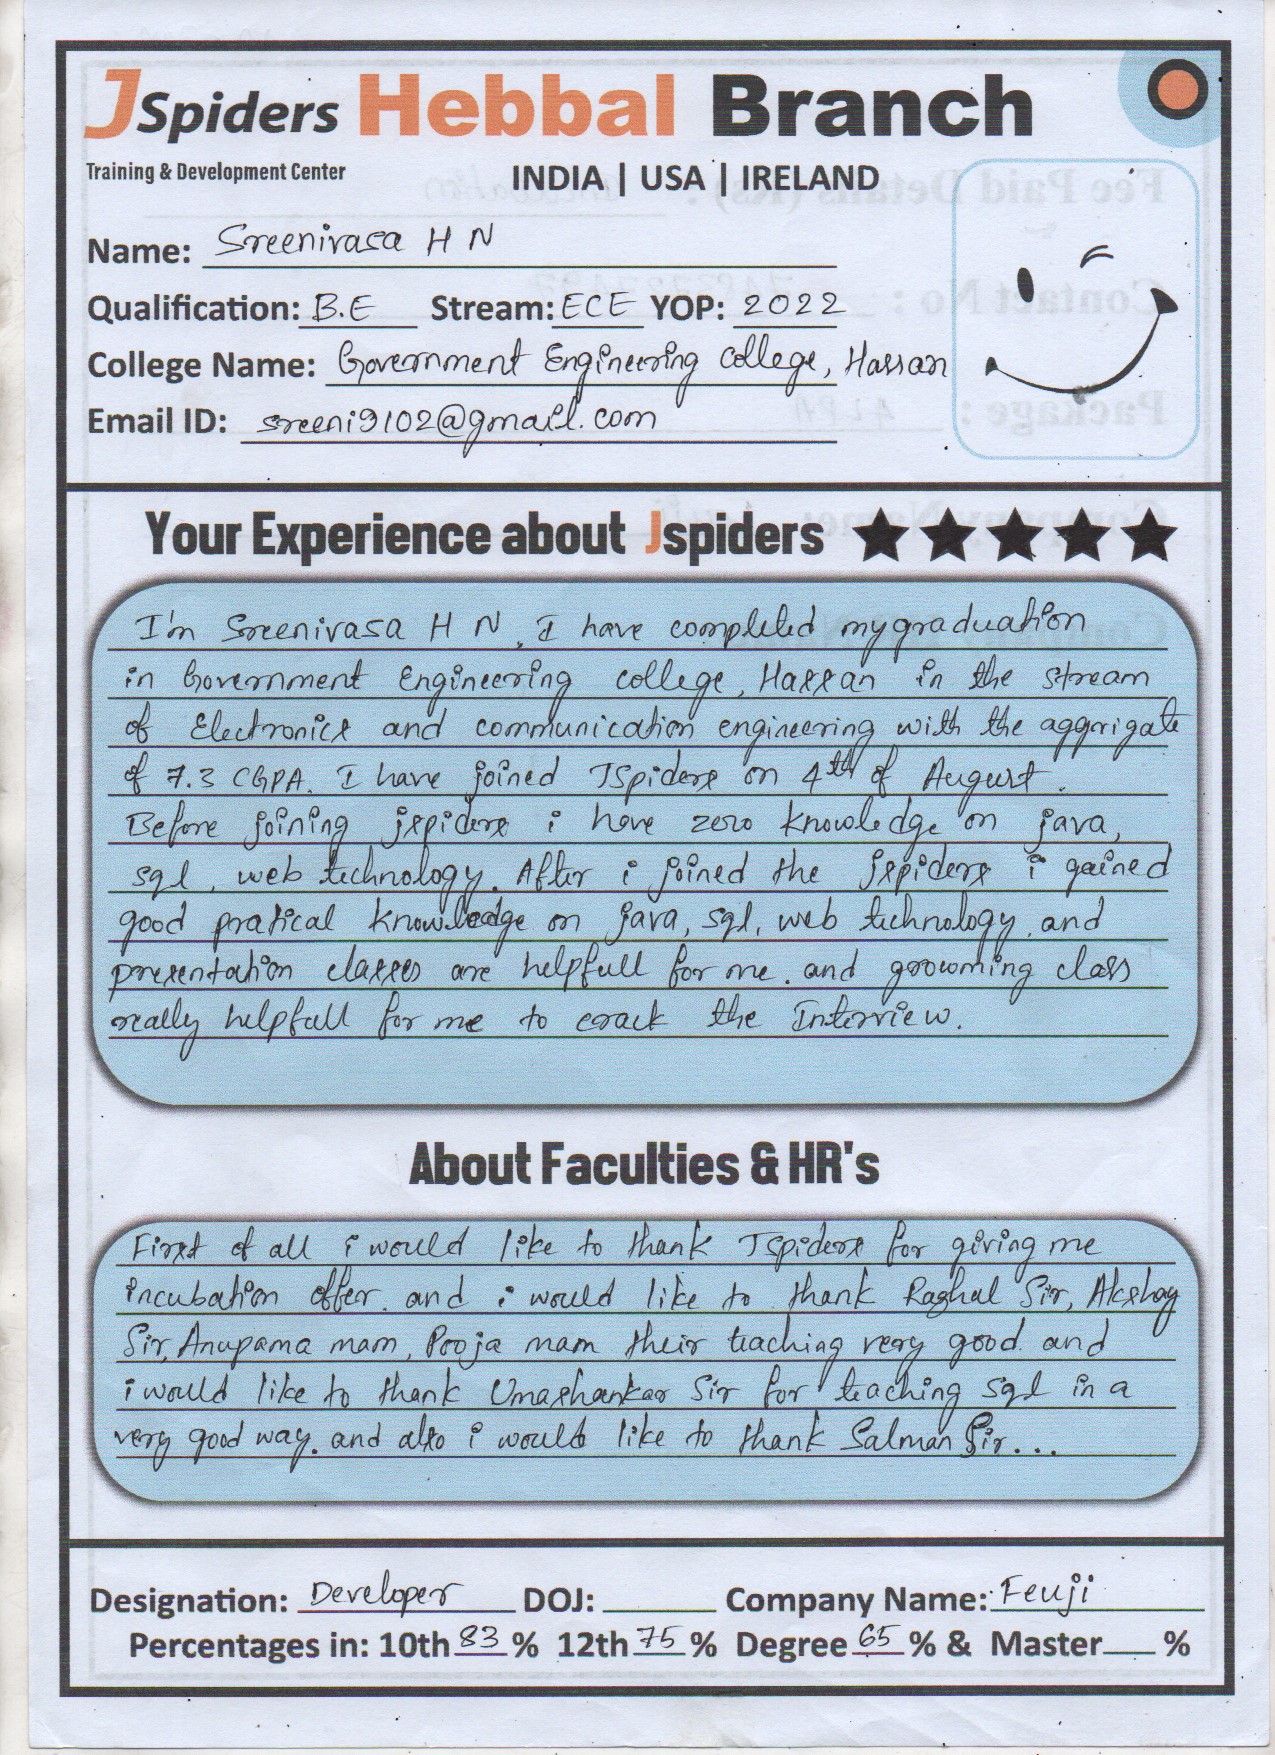 JSpiders Hebbal Branch
Training & Development Center
INDIA | USA | IRELAND
Name: Sreenivasa H N
Qualification: B.E Stream: ECE YOP: 2022
College Name: Government Engineering College, Hassan
Email ID: sreeni9102@gmail.com
Your Experience about Jspiders
I'm Sreenivasa H N, I have completed my graduation
in Government Engineering college, Hassan in the stream
of Electronics and communication engineering with the aggrigate
of 7.3 CGPA. I have joined JSpiders on 4th of August.
Before joining jspiders i have zero knowledge on java,
sql, web technology. After i joined the jspiders i gained
good pratical knowledge on java, sql, web technology, and
presentation classes are helpfull for me. and growming class
really helpfull for me to crack the Interview.
About Faculties & HR's
First of all i would like to thank JSpiders for giving me
incubation offer. and i would like to thank Raghul Sir, Akshay
Sir, Anupama mam, Pooja mam their teaching very good. and
i would like to thank Umashankar Sir for teaching sql in a
very good way. and also i would like to thank Salman Sir...
Designation: Developer DOJ: Company Name: Feuji
Percentages in: 10th 83 % 12th 75 % Degree 65 % & Master %